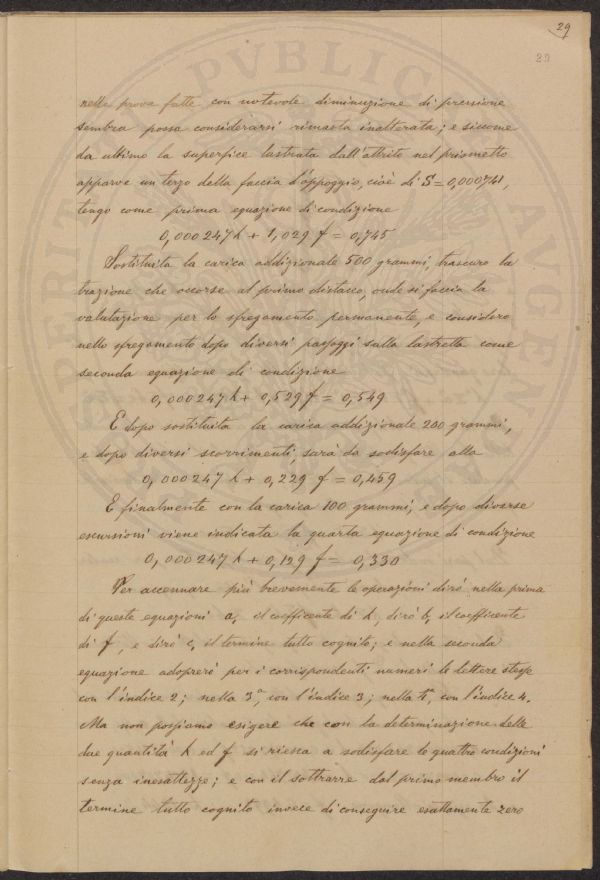 29
29
nella prova fatte con notevole diminuzione di pressione
sembra possa considerarsi rimasta inalterata; e siccome
da ultimo la superfice lastrata dall'attrito nel prismetto
apparve un terzo della faccia d'appoggio, cioè di S = 0,000741,
tengo come prima equazione di condizione
0,000247 k + 1,029 f = 0,745
Sostituita la carica addizionale 500 grammi, trascuro la
trazione che occorse al primo distacco, onde si faccia la
valutazione per lo sfregamento permanente, e considero
nello sfregamento dopo diversi passaggi sulla lastretta come
seconda equazione di condizione
0,000247 k + 0,529 f = 0,549
E dopo sostituita la carica addizionale 200 grammi,
e dopo diversi scorrimenti, sarà da sodisfare alla
0,000247 k + 0,229 f = 0,459
E finalmente con la carica 100 grammi, e dopo diverse
escursioni viene indicata la quarta equazione di condizione
0,000247 k + 0,129 f = 0,330
Per accennare più brevemente le operazioni dirò nella prima
di queste equazioni a, il coefficente di k, dirò b, il coefficente
di f, e dirò c, il termine tutto cognito; e nella seconda
equazione adoprerò per i corrispondenti numeri le lettere stesse
con l'indice 2; nella 3ª, con l'indice 3; nella 4ª, con l'indice 4.
Ma non possiamo esigere che con la determinazione delle
due quantità k ed f si riesca a sodisfare le quattro condizioni
senza inesattezze; e con il sottrarre dal primo membro il
termine tutto cognito invece di conseguire esattamente zero